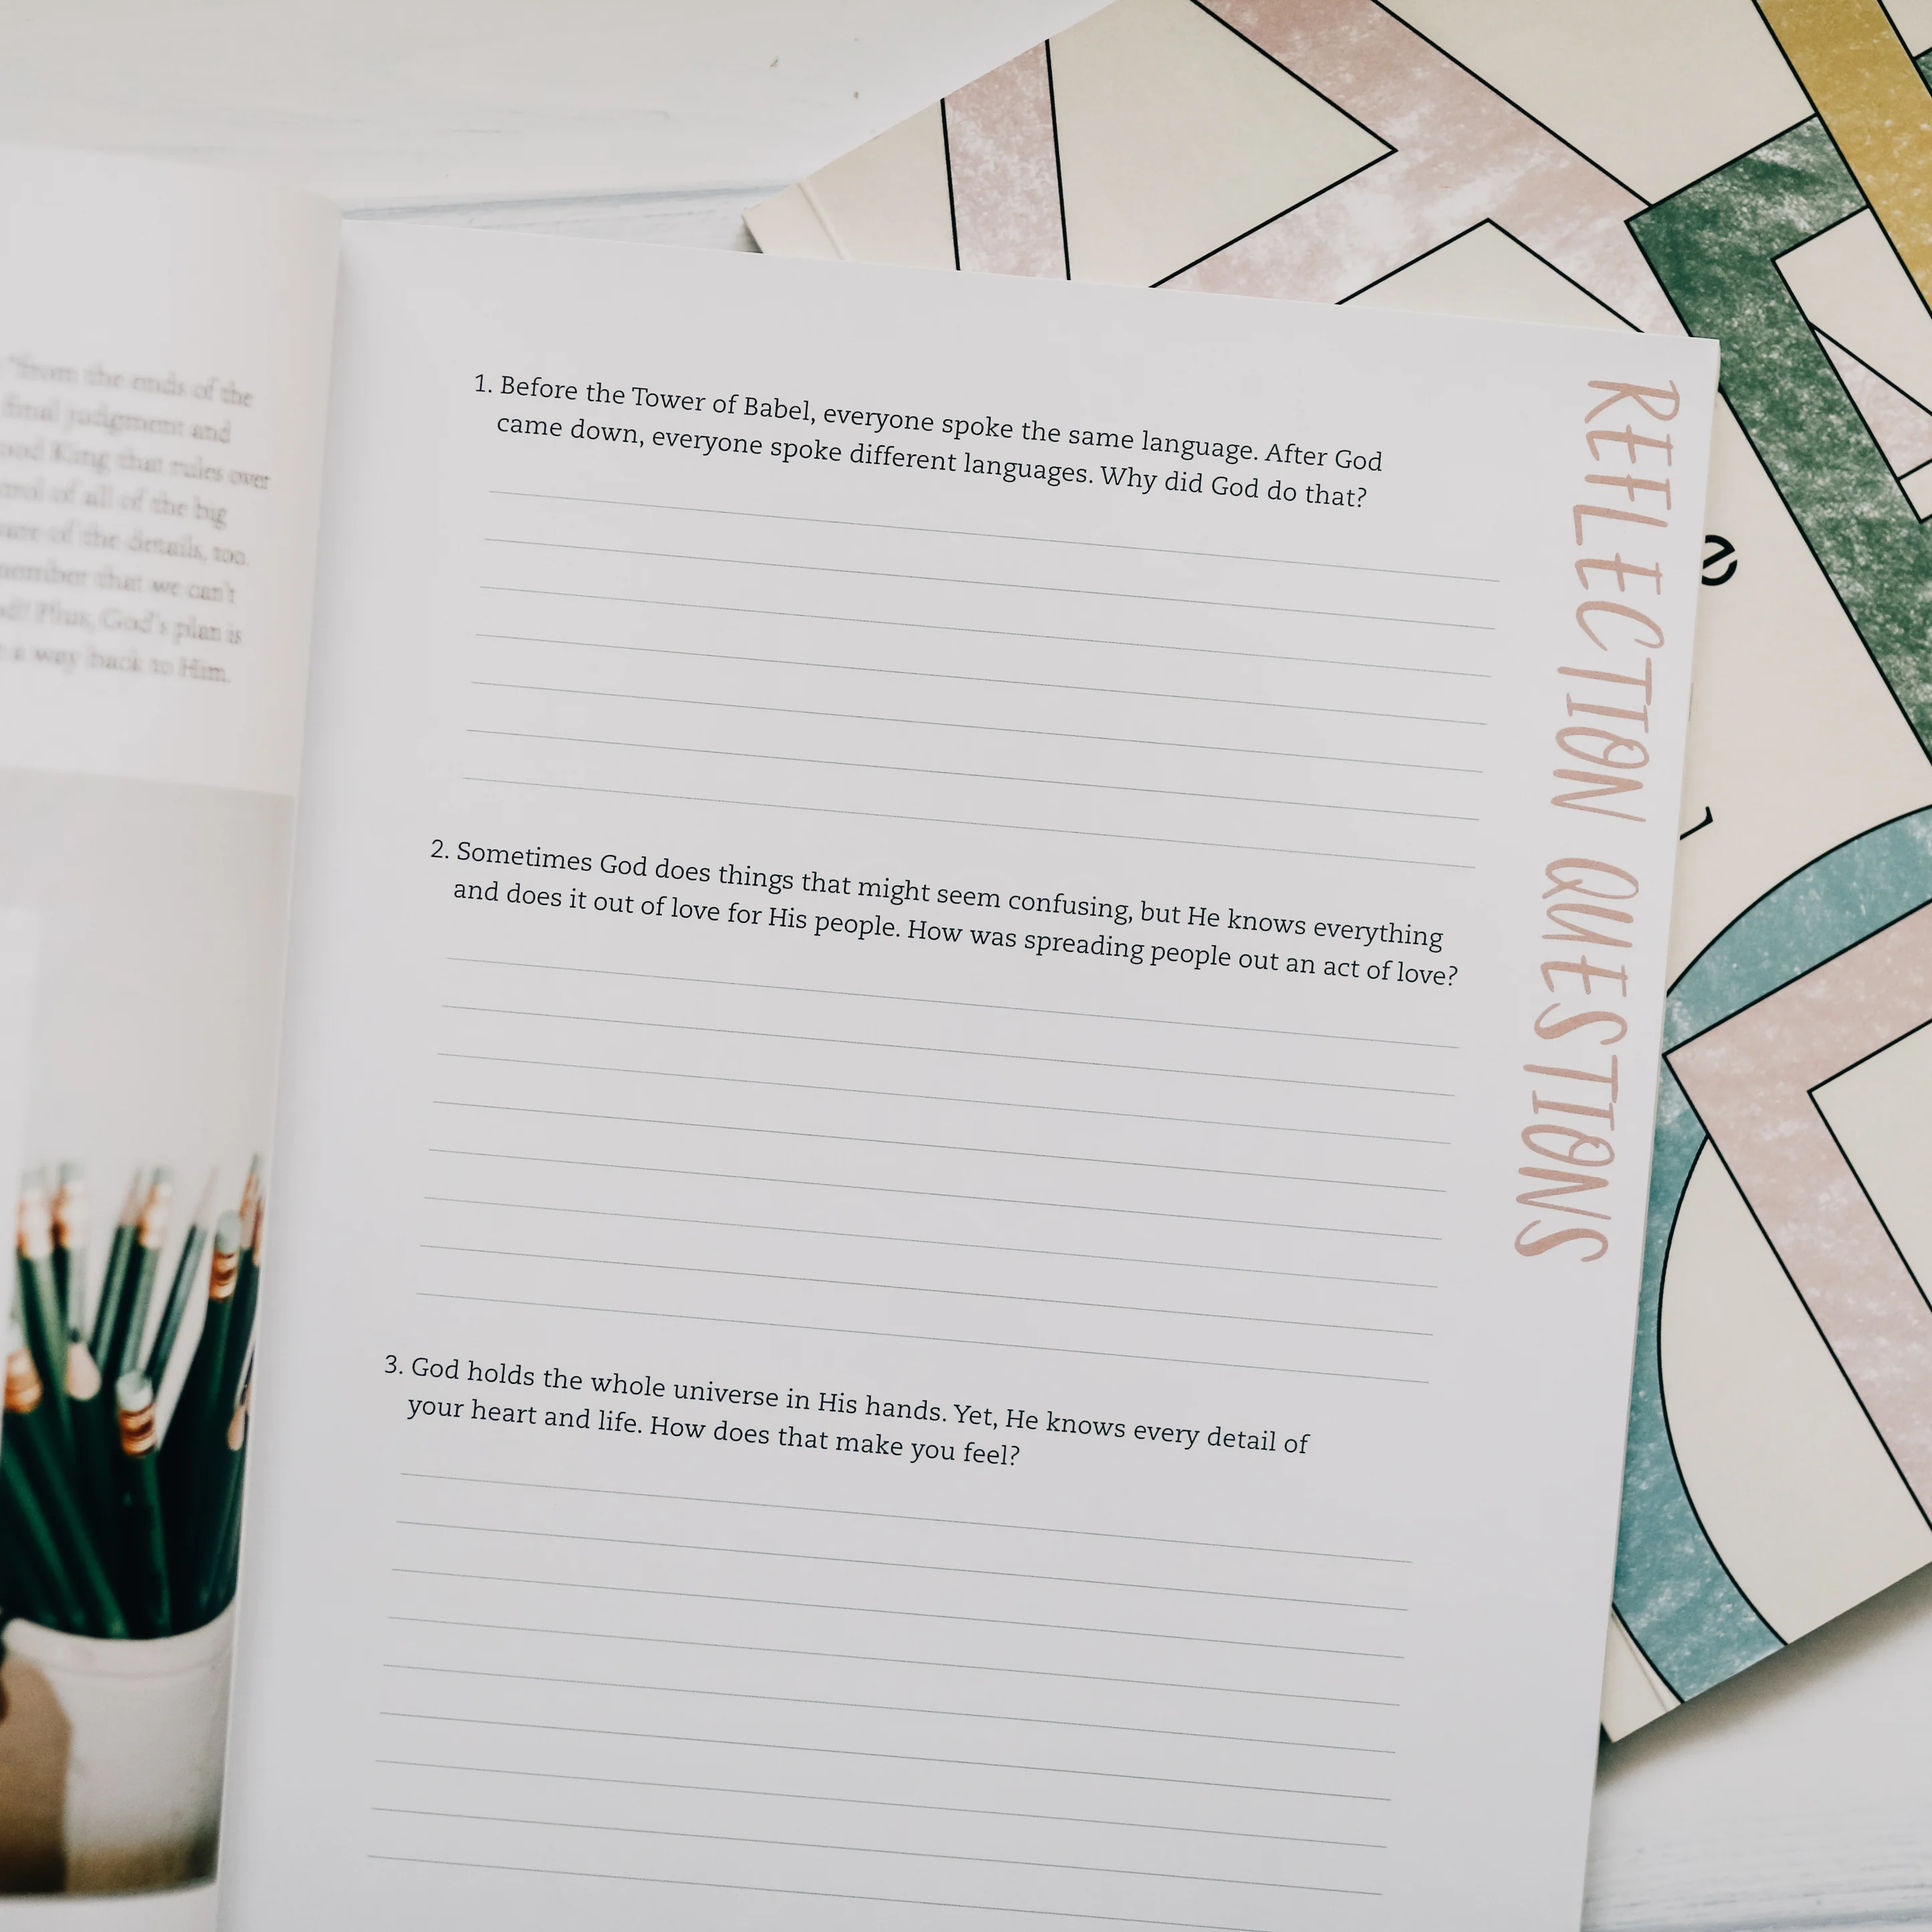 "from the ends of the
final judgment and
King that rules over
of all of the big
of the details, too.
that we can't
Plus, God's plan is
a way back to Him.
1. Before the Tower of Babel, everyone spoke the same language. After God
came down, everyone spoke different languages. Why did God do that?
2. Sometimes God does things that might seem confusing, but He knows everything
and does it out of love for His people. How was spreading people out an act of love?
3. God holds the whole universe in His hands. Yet, He knows every detail of
your heart and life. How does that make you feel?
REFLECTION QUESTIONS
e